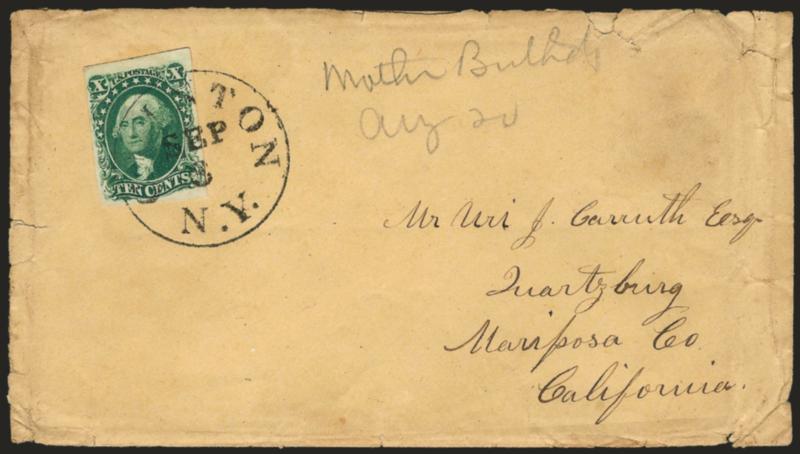 X U.S. POSTAGE X
TEN CENTS
TON
SEP
N.Y.
Mother
Aug 20
Mr Uri J. Carruth Esq
Quartzburg
Mariposa Co.
California.